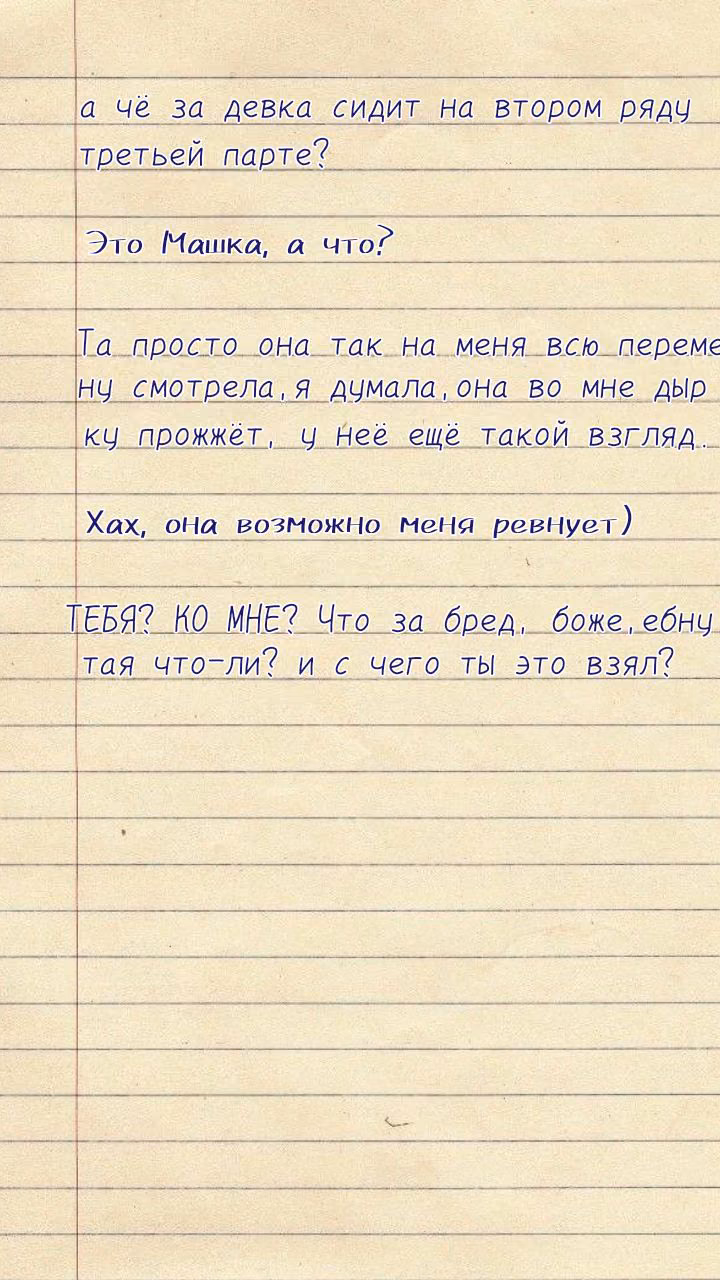 а чё за девка сидит на втором ряду
третьей парте?
Это Машка, а что?
Та просто она так на меня всю переме
ну смотрела, я думала, она во мне дыр
ку прожжёт, у неё ещё такой взгляд.
Хах, она возможно меня ревнует)
ТЕБЯ? КО МНЕ? Что за бред, боже, ебну
тая что-ли? и с чего ты это взял?